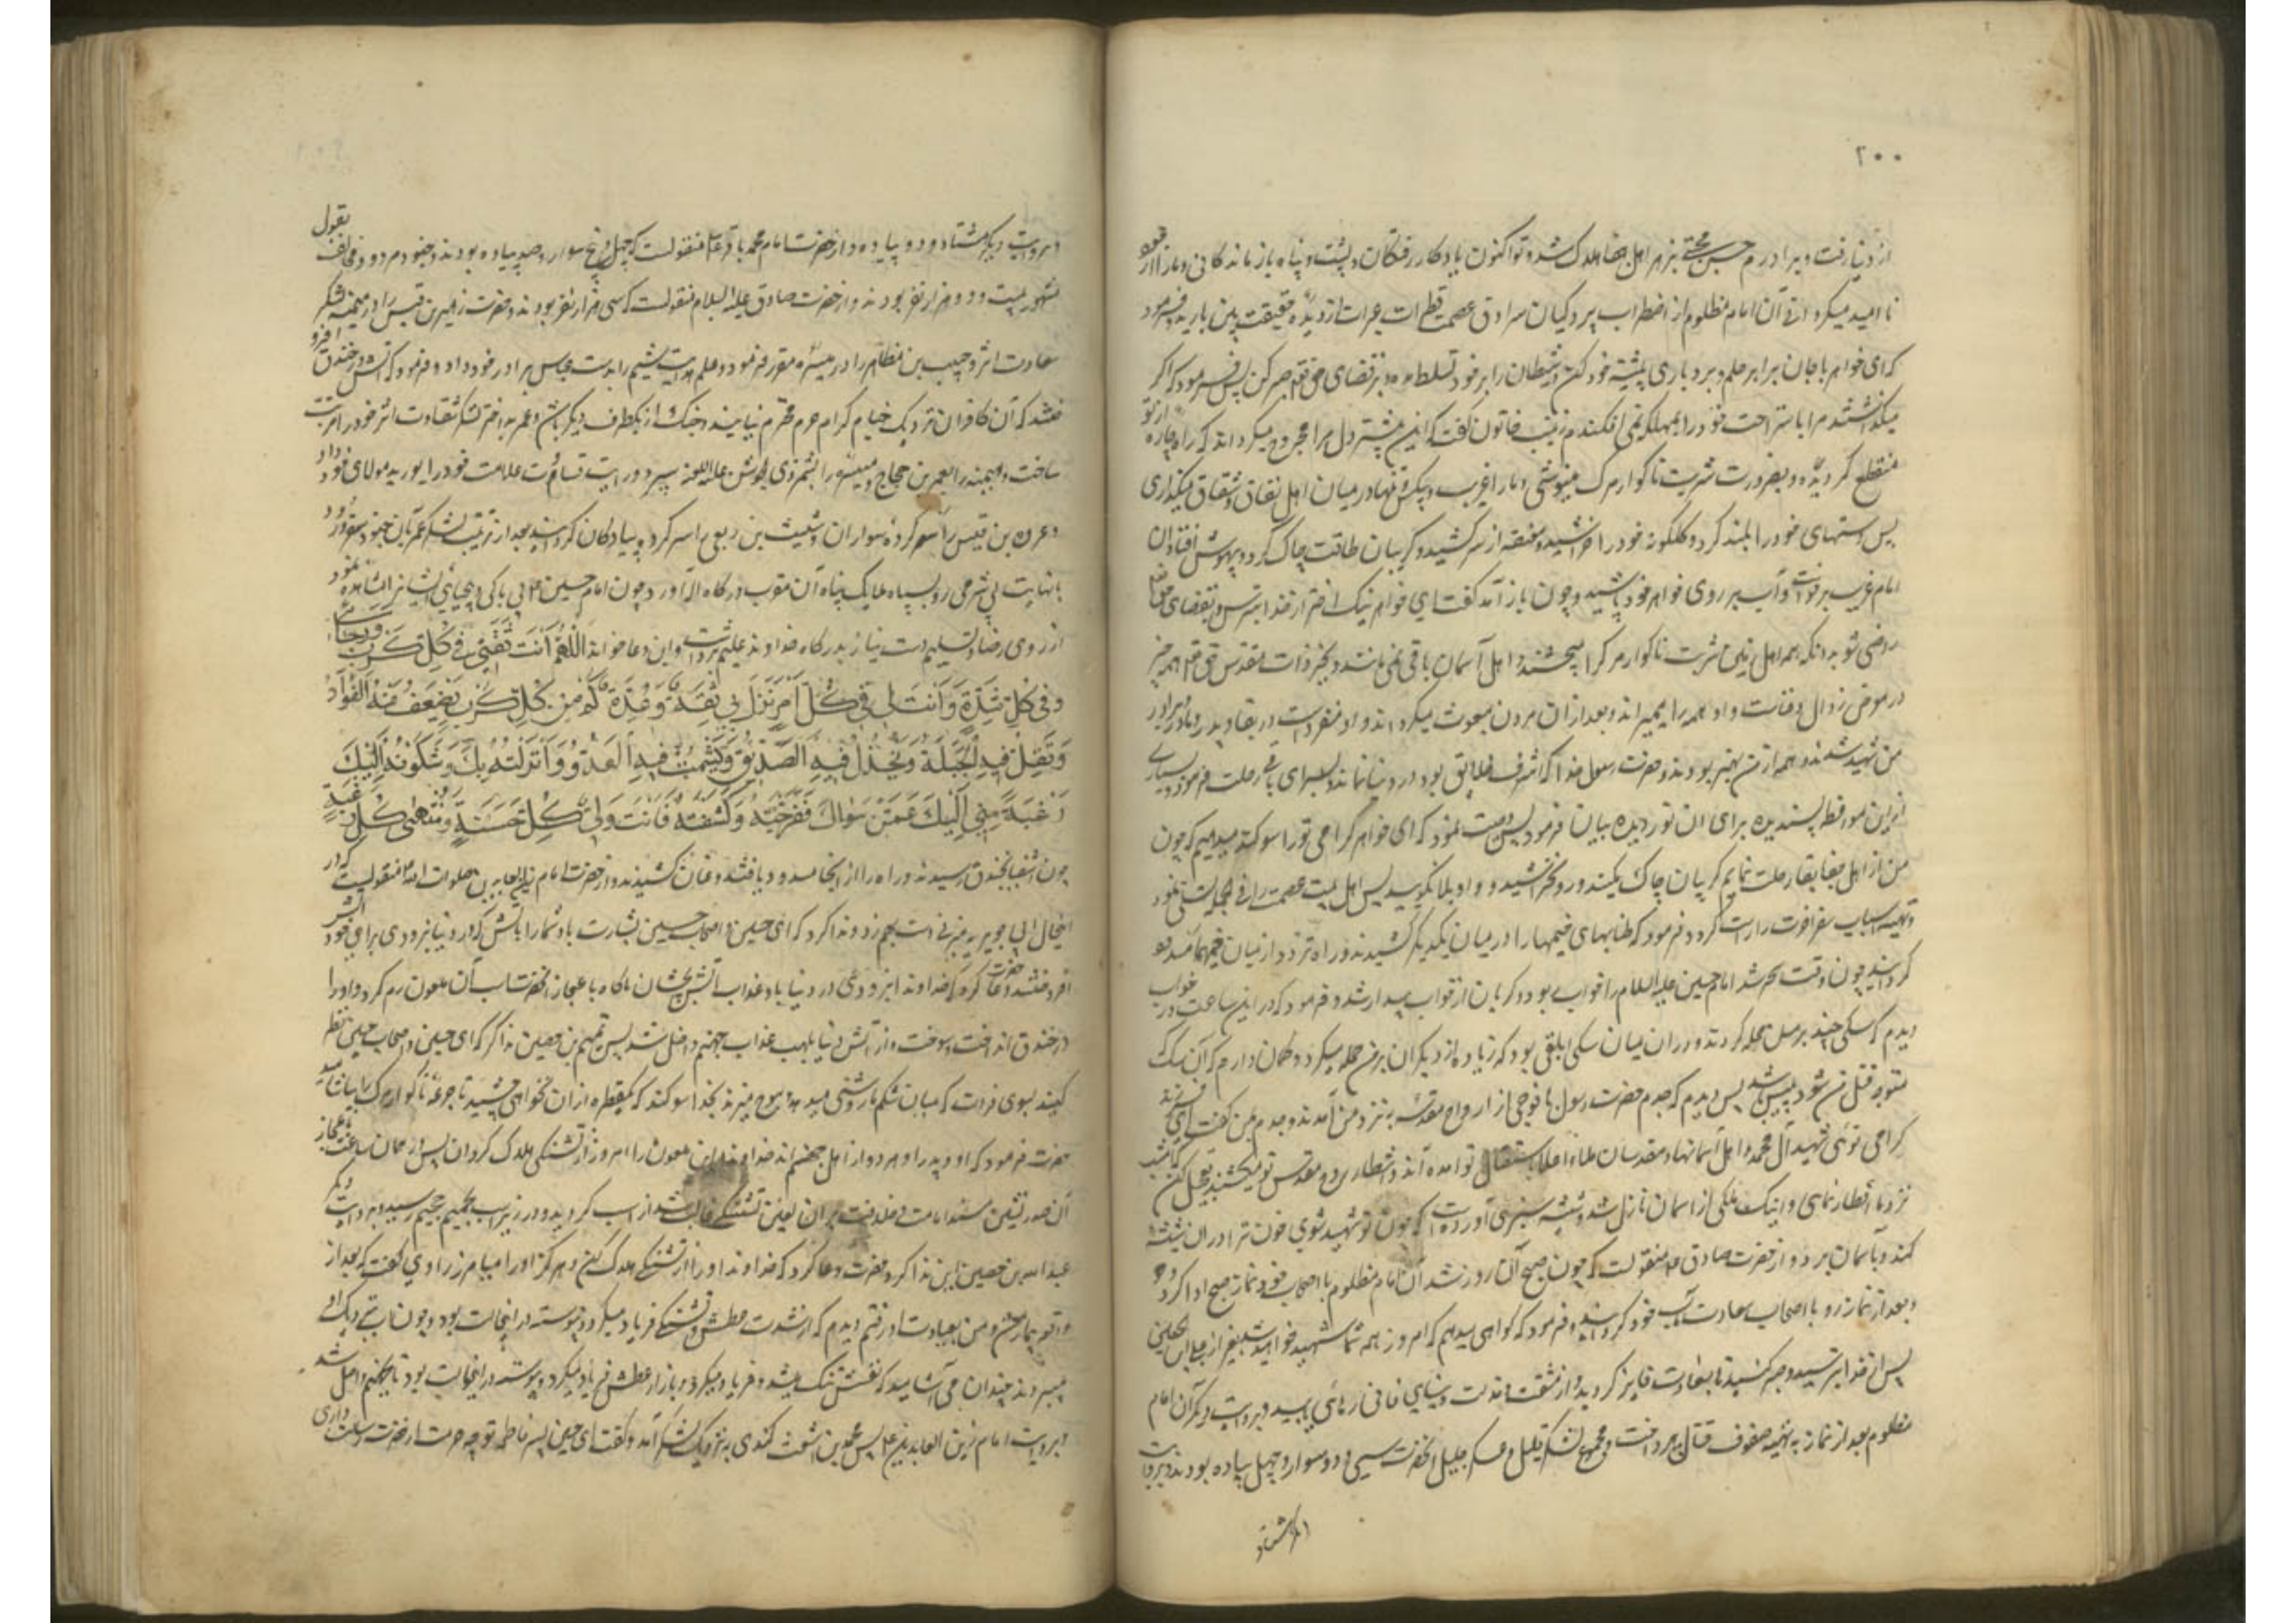 ۲۰۰
از دنیا رفت و برادرم حسن مجتبی بزهر اهل جفا هلاک شد و تو اکنون یادکار رفتکان و پشت و پناه بازماندکانی و ما را از خود
نا امید میکردانی آن امام مظلوم از اضطراب پردکیان سرادق عصمت قطرات عبرات از دیده حقیقت بین بارید و فرمود
که ای خواهر با جان برابر حلم و بردباری پیشه خود کن و شیطان را بر خود تسلط مده و بر قضای حق تعالی صبر کن پس فرمود که اکر
میکذاشتند مرا باستراحت خود را بمهلکه نمی افکندم زینب خاتون کفت که این بیشتر دل مرا مجروح میکرداند که راه چاره از تو
منقطع کردیده و بضرورت شربت ناکوار مرک مینوشی و ما را غریب و بیکس و تنها در میان اهل نفاق و شقاق میکذاری
پس دستهای خود را بلند کرد و کلکونه خود را خراشید و مقنعه از سر کشید و کریبان طاقت چاک کرد و بیهوش افتاد آن
امام غریب برخواست و آب بر روی خواهر خود پاشید و چون باز آمد کفت ای خواهر نیک اختر از خدا بترس و بقضای حق تعالی
راضی شو بدانکه همه اهل زمین شربت ناکوار مرک را میچشند و اهل آسمان باقی نمی مانند و بجز ذات مقدس حق تعالی همه چیز
در معرض زوال و فناست و او همه را میمیراند و بعد از ان مردن مبعوث میکرداند و او منفرد است در بقا و پدر و مادر و برادر
من شهید شدند و همه از من بهتر بودند و حضرت رسول خدا که اشرف خلایق بود در دنیا نماند و بسرای باقی رحلت فرمود و بسیاری
از این مواعظ پسندیده برای ان نور دیده بیان فرمود پس وصیت نمود که ای خواهر کرامی تو را سوکند میدهم که چون
من از اهل جفا بقا رحلت نمایم کریبان چاک نکنید و رو مخراشید و واویلا نکویید پس اهل بیت عصمت را فی الجمله تسلی نمود
و تهیه اسباب سفر آخرت را راست کرد و فرمود که طنابهای خیمها را در میان یکدیکر کشیدند و راه تردد از میان خیمها مسدود
کردانید چون وقت سحر شد امام حسین علیه السلام را خواب بود و کریان از خواب بیدار شد و فرمود که در این ساعت در خواب
دیدم که سکی چند بر من حمله کردند و در ان میان سکی ابلقی بود که زیاده از دیکران بر من حمله میکرد و کمان دارم که آن سک
متوجه قتل من شود پس دیدم که جدم حضرت رسول با فوجی از ارواح مقدسه بنزد من آمدند و جدم بمن کفت ای فرزند
کرامی توئی شهید آل محمد و اهل آسمانها و مقدسان ملاء اعلا باستقبال تو آمده اند و انتظار روح مقدس تو میکشند تعجیل کن که امشب
نزد ما افطار نمای و اینک ملکی از آسمان نازل شد و شیشه سبزی آورده است که چون تو شهید شوی خون ترا در ان شیشه
کند و بآسمان برد و از حضرت صادق ع منقولست که چون صبح آن روز شد آن امام مظلوم با اصحاب خود نماز صبح ادا کرد و
بعد از نماز رو با اصحاب سعادت مآب خود کردانید و فرمود که کواهی میدهم که امروز همه شما شهید خواهید شد بغیر از علی بن الحسین
پس از خدا بترسید و صبر کنید تا بسعادت فایز کردید و از مشقت و مذلت دنیای فانی رهائی یابید و بروایت دیکر آن امام
مظلوم بعد از نماز به تهیه صفوف قتال پرداخت و مجموع لشکر قلیل و عسکر جلیل آنحضرت سی و دو سوار و چهل پیاده بودند و بروایت
دیکر هشتاد
و بروایت دیکر هشتاد و دو پیاده و از حضرت امام محمد باقر ع منقولست که چهل و پنج سوار و صد پیاده بودند و جنود مردود مخالف بقول
مشهور بیست و دو هزار نفر بودند و از حضرت صادق علیه السلام منقولست که سی هزار نفر بودند و حضرت زهیر بن قیس را در میمنه لشکر
سعادت اثر و حبیب بن مظاهر را در میسره مقرر فرمود و علم هدایت شیم را بدست عباس برادر خود داد و فرمود که آتش در خندق افروختند
که آن کافران نزدیک خیام کرام حرم محترم نیایند و جنک از یکطرف دیکر باشد و عمر بد اختر لشکر شقاوت اثر خود را مرتب
ساخت و میمنه را بعمر بن حجاج و میسره را بشمر ذی الجوشن علیه اللعنه سپرد و رایت قساوت علامت خود را بورید مولای خود داد
و عروه بن قیس را سر کرده سواران و شیث بن ربعی را سر کرده پیادکان کردانید بعد از ترتیب لشکر عمر بآن جنود مقرور
با نهایت بی شرمی رو بسپاه ملایک پناه آن مقرب درکاه اله آورد و چون امام حسین ع بی باکی و بیحیائی ایشان را مشاهده نمود
از روی رضا و تسلیم دست نیاز بدرکاه خداوند علیم برداشت و این دعا خواند اَللّٰهُمَّ اَنْتَ ثِقَتِی فِی کُلِّ کَرْبٍ وَرَجَائِی
وَفِی کُلِّ شِدَّةٍ وَاَنْتَ لِی فِی کُلِّ اَمْرٍ نَزَلَ بِی ثِقَةٌ وَعُدَّةٌ کَمْ مِنْ کُلِّ کَرْبٍ یَضْعَفُ مِنْهُ الفُؤَادُ
وَتَقِلُّ فِیهِ الْحِیلَةُ وَیَخْذُلُ فِیهِ الصَّدِیقُ وَیَشْمَتُ فِیهِ الْعَدُوُّ وَاَنْزَلْتُهُ بِكَ وَشَکَوْتُهُ اِلَیْكَ
رَغْبَةً مِنِّی اِلَیْكَ عَمَّنْ سِوَاكَ فَفَرَّجْتَهُ وَکَشَفْتَهُ فَاَنْتَ وَلِیُّ کُلِّ حَسَنَةٍ وَمُنْتَهٰی کُلِّ رَغْبَةٍ
چون اشقیا بخندق رسیدند و راه را از انجا مسدود یافتند و عنان کشیدند و از حضرت امام زین العابدین صلوات الله منقولست که در
اینحال ابی جویریه مزنی دست بهم زد و ندا کرد که ای حسین و اصحاب حسین بشارت باد شما را بآتش که در دنیا بزودی برای خود آتش
افروختید حضرت دعا کرد که خداوندا بزودی در دنیا باو عذاب آتش بچشان ناکاه با عجاز آنحضرت اسب آن ملعون رم کرد و او را
در خندق انداخت و سوخت و از آتش دنیا بلهب عذاب جهنم داخل شد پس تمیم بن حصین ندا کرد که ای حسین و اصحاب حسین نظر
کنید بسوی فرات که میان شکم مار روشنی میدهد و موج میزند بخدا سوکند که یکقطره از ان نخواهی چشید تا جرعه ناکوار مرک را بیاشامید
حضرت فرمود که او و پدر او هر دو از اهل جهنم اند خداوندا این ملعون را امروز از تشنکی هلاک کردان پس در همان ساعت باعجاز
آن صدر نشین مسند امامت و خلافت بر ان لعین تشنکی غالب شد از اسب کردید و در زیر اسب بجحیم رسید و بروایت دیکر
عبد الله بن حصین این ندا کرد حضرت دعا کرد که خداوندا او را از تشنکی هلاک کن و هرکز او را میامرز راوی کفت که بعد از
واقعه بیمار شد و من بعیادت او رفتم دیدم که از شدت عطش و تشنکی فریاد میکرد و پیوسته در اینحالت بود و چون آب نزدیک او
میبردند چندان می آشامید که نفسش تنک میشد و فریاد میکرد و باز از عطش فریاد میکرد و پیوسته در اینحالت بود تا بجهنم واصل شد
و بروایت امام زین العابدین ع پس محمد بن اشعث کندی به نزدیک لشکر آمد و کفت ای حسین پسر فاطمه تو چه حرمت از حضرت رسالت داری